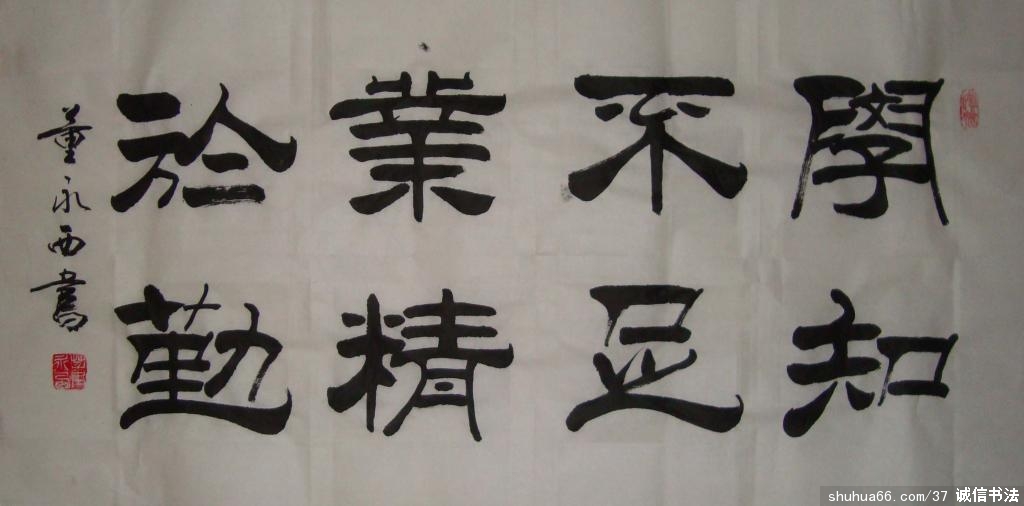 學知
不足
業精
於勤
董永西書
shuhua66.com/37 诚信书法